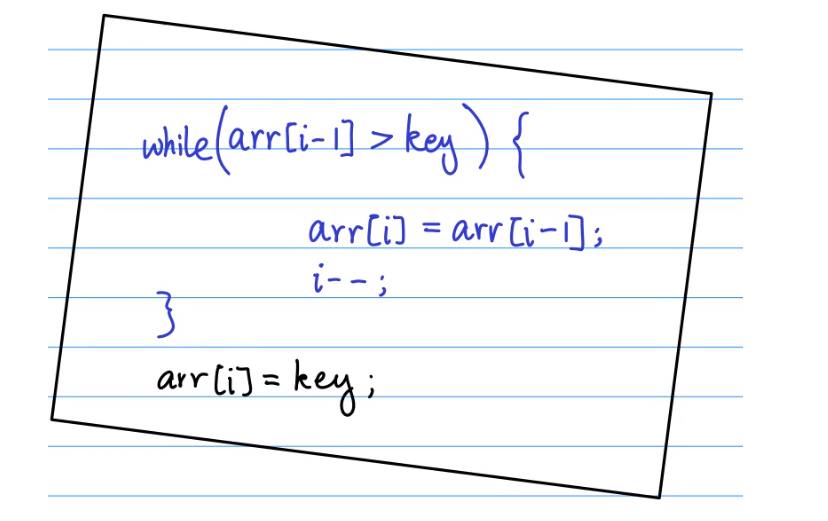 while(arr[i-1] > key) {
arr[i] = arr[i-1];
i--;
}
arr[i] = key;